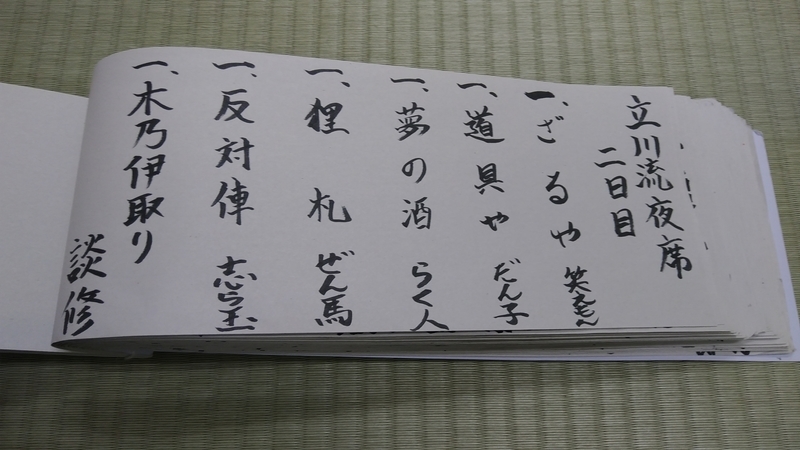 立川流夜席
二日目
一、ざるや 笑えもん
一、道具や だん子
一、夢の酒 らく人
一、狸札 ぜん馬
一、反対俥 志ら玉
一、木乃伊取り 談修